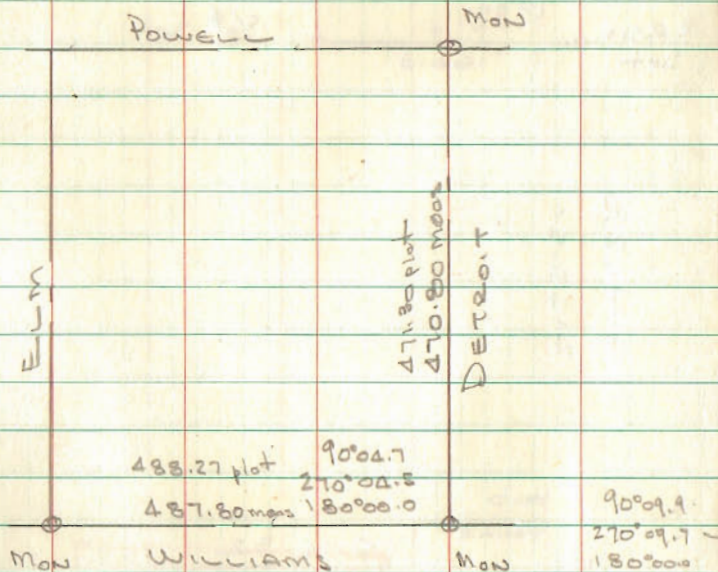 MON
POWELL
ELM
471.30 plat
470.80 meas
DETROIT
488.27 plat
487.80 meas
90°04.7
270°04.5
180°00.0
90°09.9
270°09.7
180°00.0
MON
WILLIAMS
MON